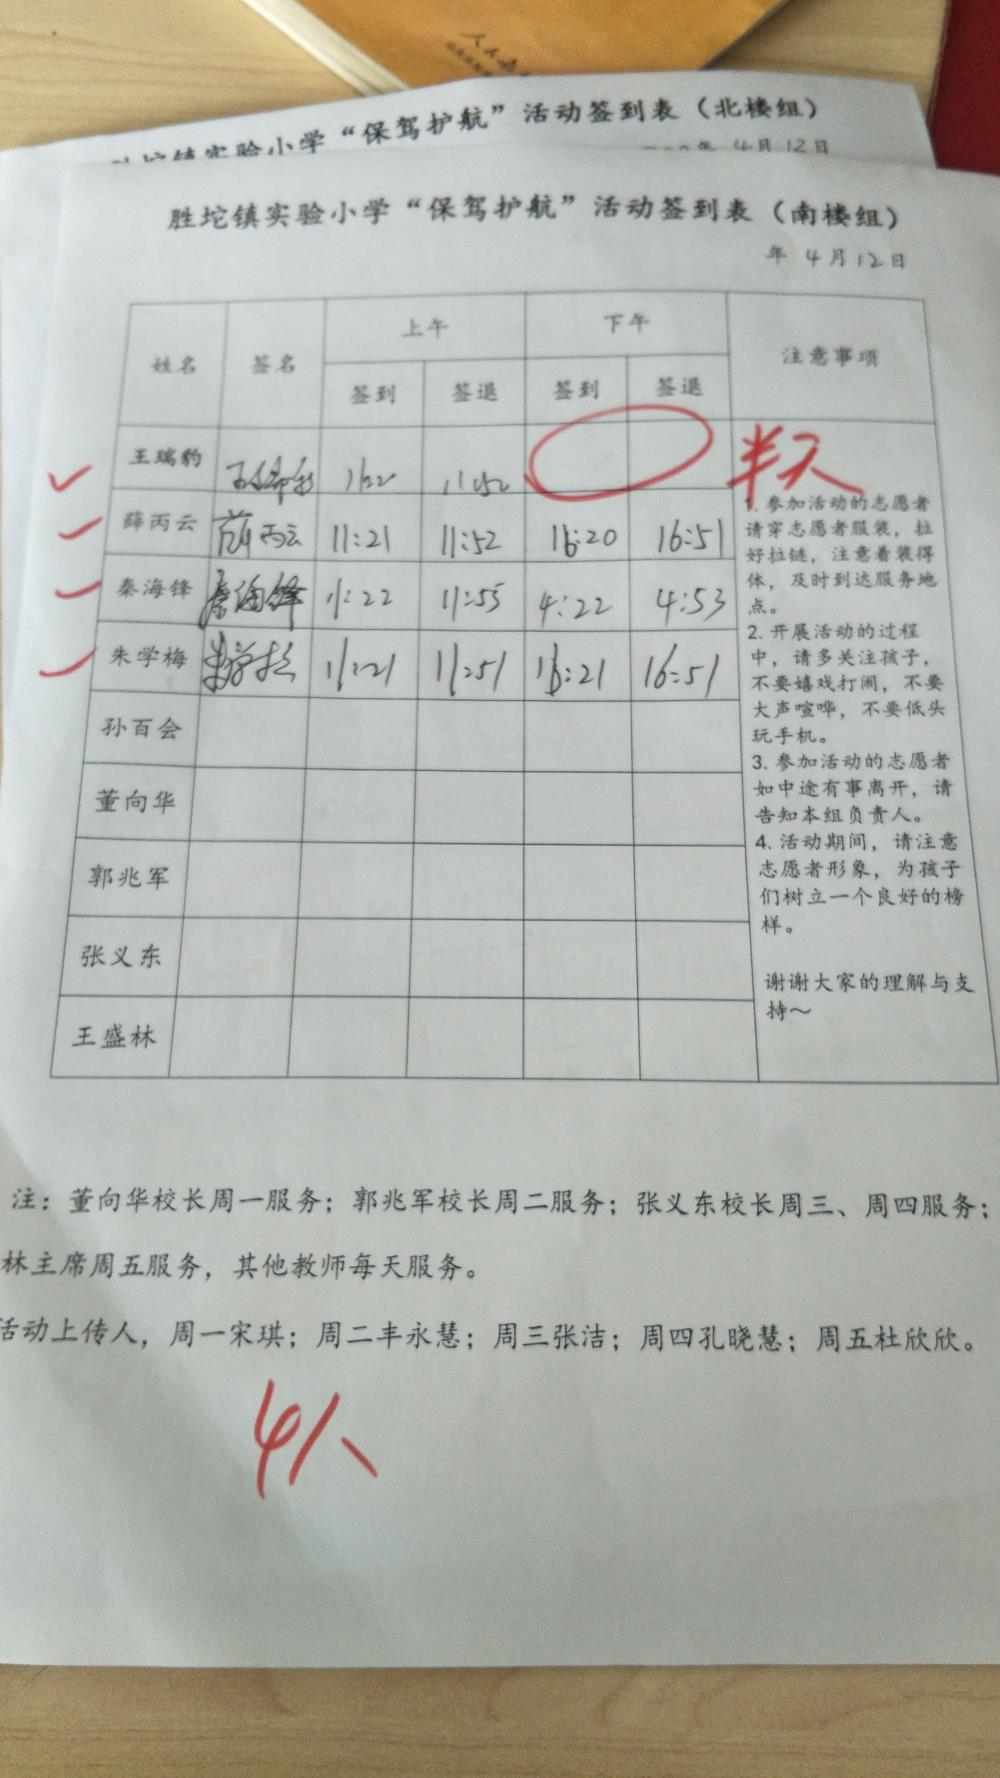 人民教
胜坨镇实验小学“保驾护航”活动签到表（北楼组）
年 4月12日
胜坨镇实验小学“保驾护航”活动签到表（南楼组）
年 4月12日
姓名 签名 上午 下午 注意事项
签到 签退 签到 签退
王瑞豹 11:52 半天
薛丙云 薛丙云 11:21 11:52 16:20 16:51
秦海锋 秦海锋 11:22 11:55 4:22 4:53
朱学梅 朱学梅 11:21 11:51 16:21 16:51
孙百会
董向华
郭兆军
张义东
王盛林
1. 参加活动的志愿者
请穿志愿者服装，拉
好拉链，注意着装得
体，及时到达服务地
点。
2. 开展活动的过程
中，请多关注孩子，
不要嬉戏打闹，不要
大声喧哗，不要低头
玩手机。
3. 参加活动的志愿者
如中途有事离开，请
告知本组负责人。
4. 活动期间，请注意
志愿者形象，为孩子
们树立一个良好的榜
样。
谢谢大家的理解与支
持～
注：董向华校长周一服务；郭兆军校长周二服务；张义东校长周三、周四服务；
林主席周五服务，其他教师每天服务。
活动上传人，周一宋琪；周二丰永慧；周三张洁；周四孔晓慧；周五杜欣欣。
4人